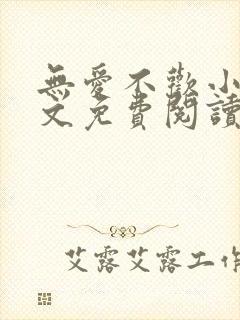 無愛不歡小
文免費閱讀
艾露艾露工作